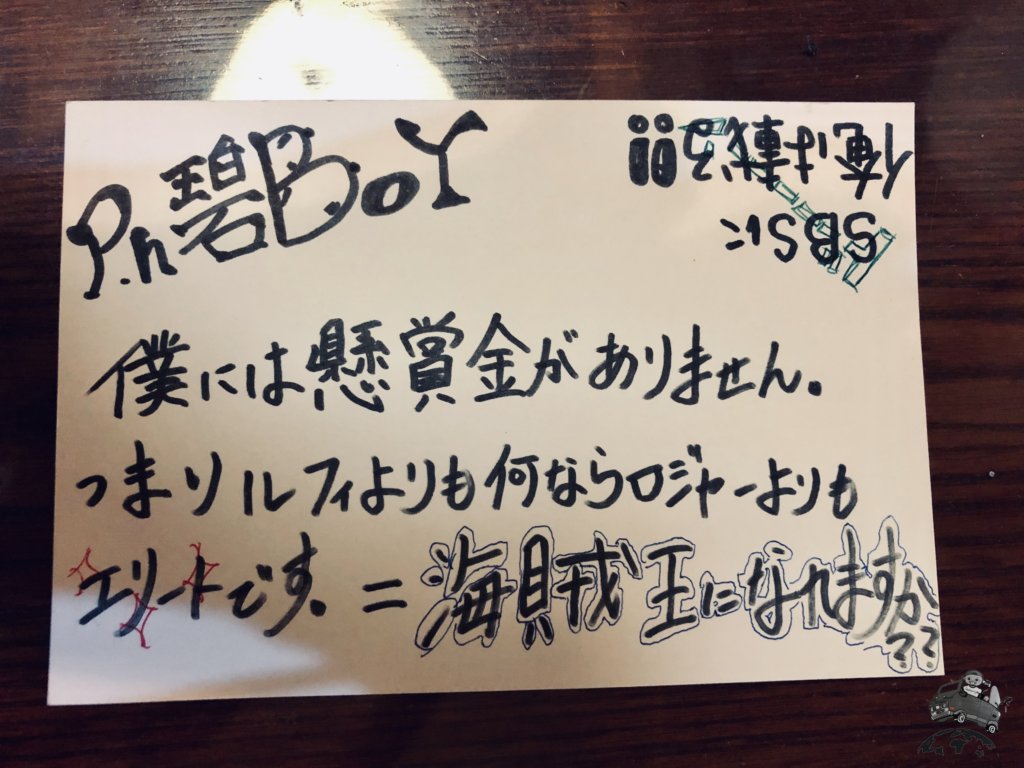 P.n碧BoY
SBSに
俺は載る!!!
僕には懸賞金がありません。
つまりルフィよりも何ならロジャーよりも
エリートです。=海賊王になれますか??